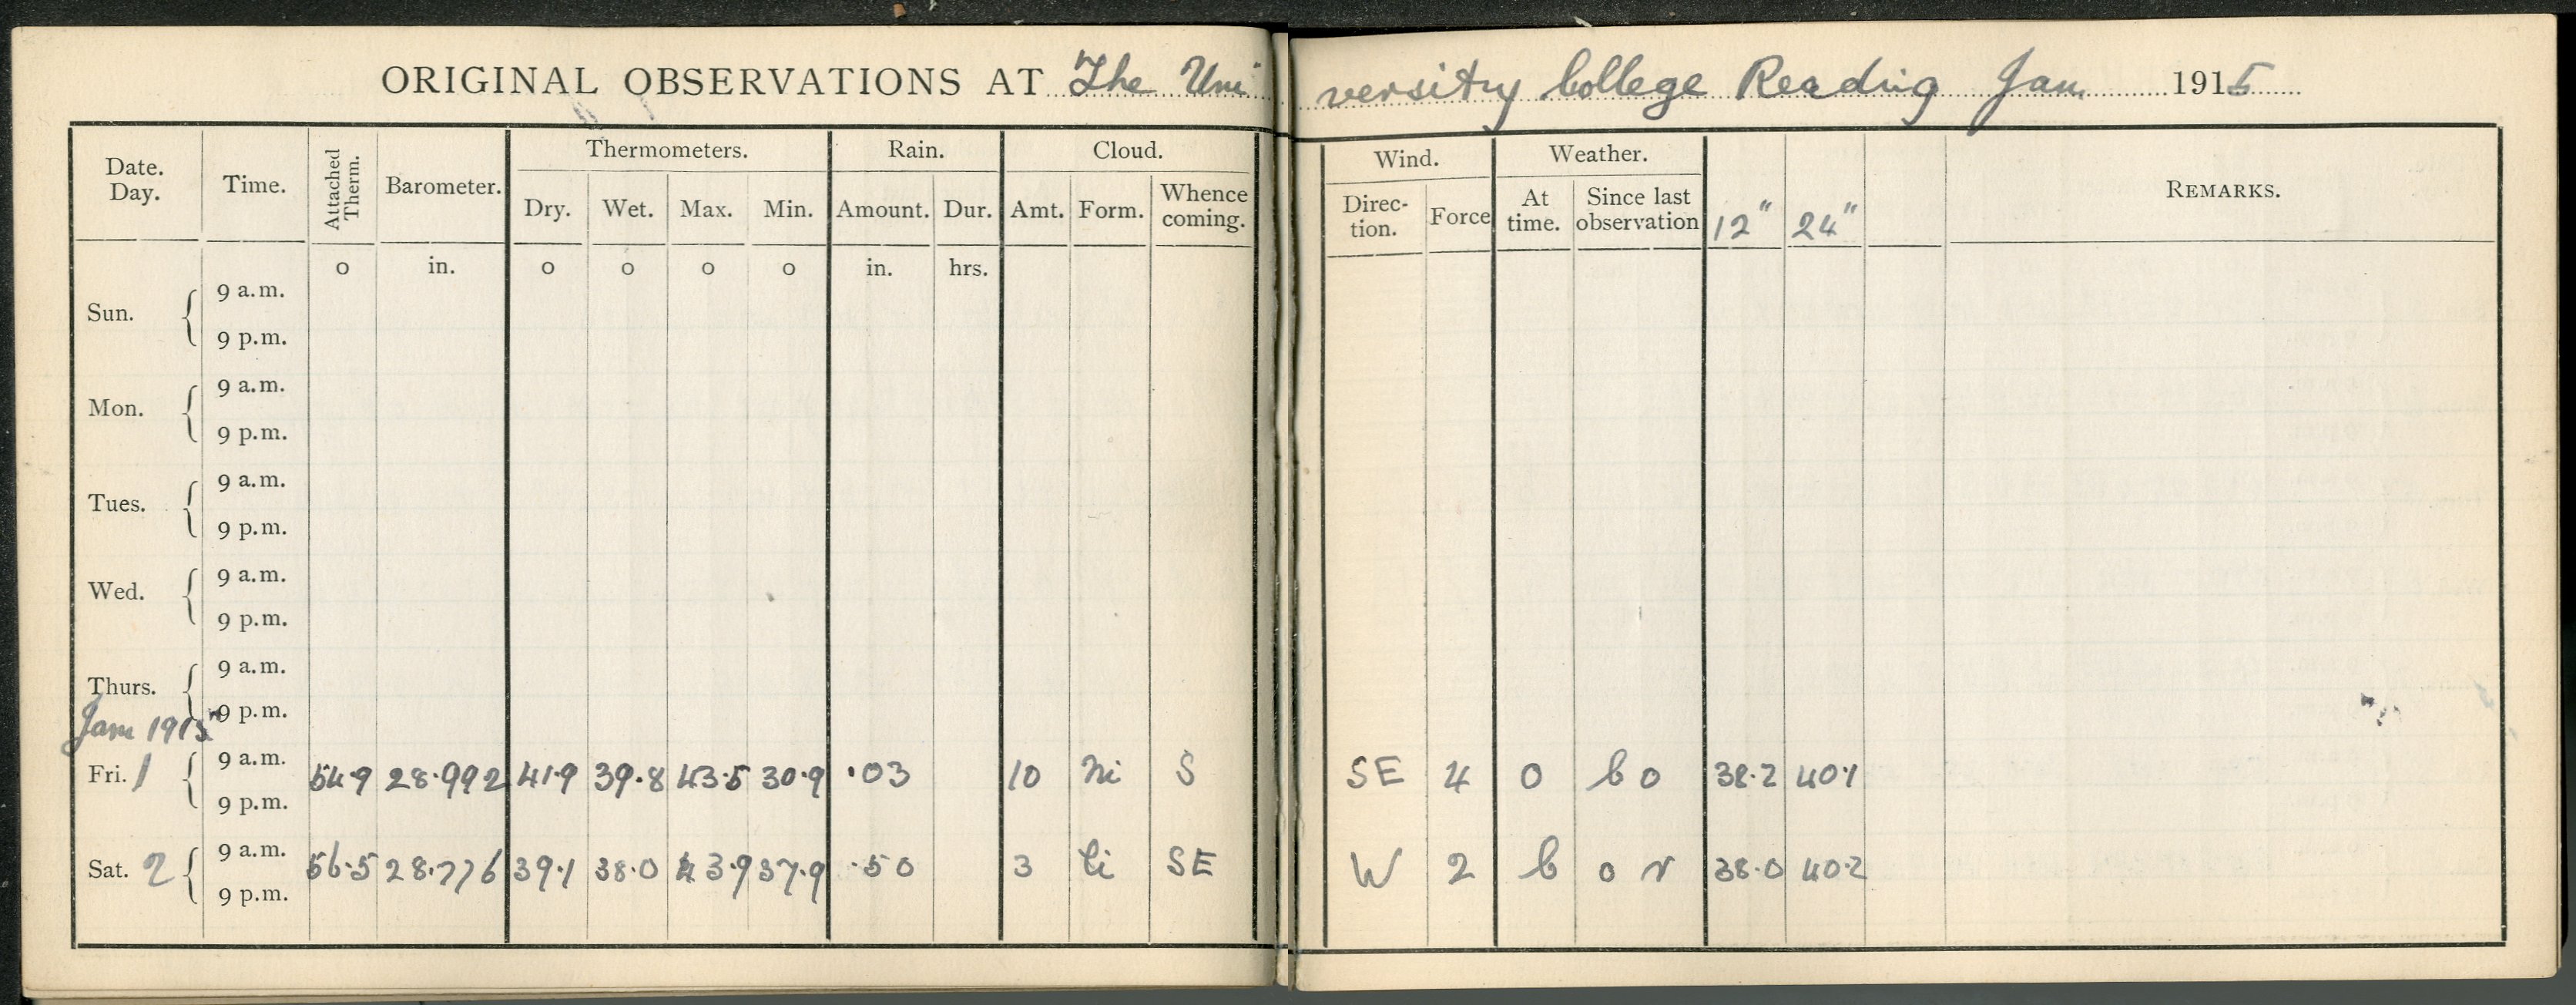 ORIGINAL OBSERVATIONS AT The University College Reading Jan. 1915
Date. Day. Time. Attached Therm. Barometer. Thermometers. Rain. Cloud. Wind. Weather. REMARKS.
Dry. Wet. Max. Min. Amount. Dur. Amt. Form. Whence coming. Direc- tion. Force At time. Since last observation 12" 24"
o in. o o o o in. hrs.
Sun. 9 a.m.
9 p.m.
Mon. 9 a.m.
9 p.m.
Tues. 9 a.m.
9 p.m.
Wed. 9 a.m.
9 p.m.
Thurs. 9 a.m.
9 p.m.
Jan 1915
Fri. 1 9 a.m. 54.9 28.992 41.9 39.8 43.5 30.9 .03 10 Ni S SE 4 o b o 38.2 40.1
9 p.m.
Sat. 2 9 a.m. 56.5 28.776 39.1 38.0 43.9 37.9 .50 3 Ci SE W 2 b o r 38.0 40.2
9 p.m.